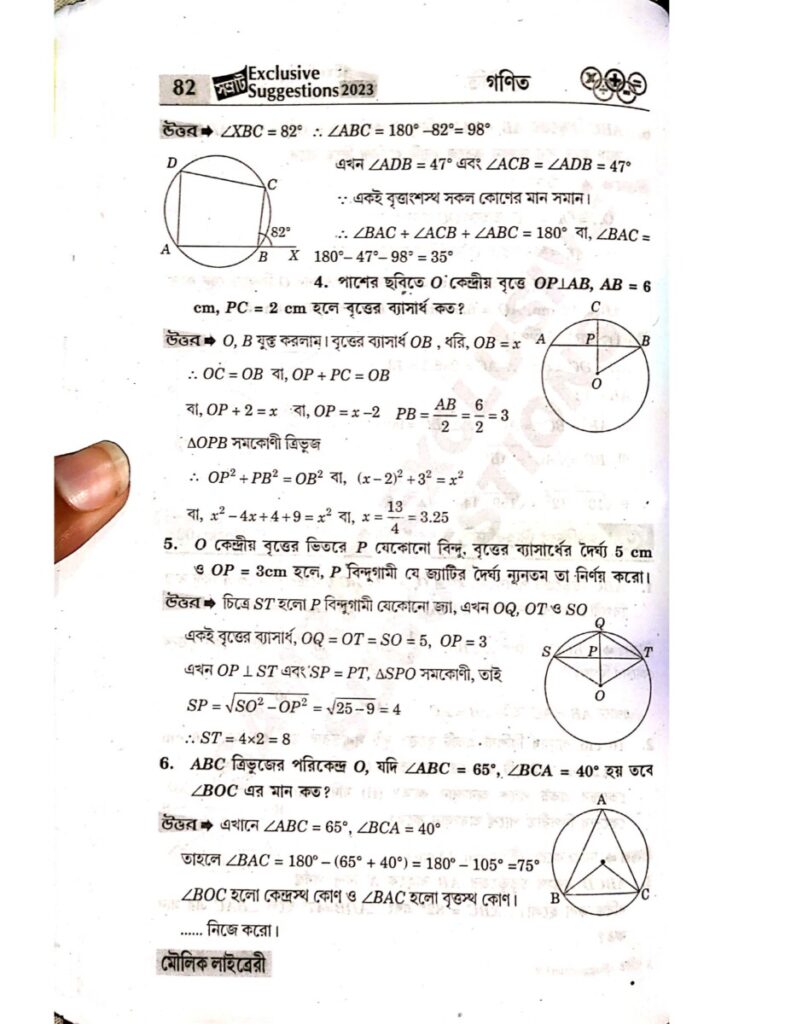 82 সম্রাট Exclusive Suggestions 2023 গণিত
উত্তর ➡ ∠XBC = 82° ∴ ∠ABC = 180° –82°= 98°
এখন ∠ADB = 47° এবং ∠ACB = ∠ADB = 47°
∵ একই বৃত্তাংশস্থ সকল কোণের মান সমান।
∴ ∠BAC + ∠ACB + ∠ABC = 180° বা, ∠BAC =
180°– 47°– 98° = 35°
D
C
82°
A
B
X
4. পাশের ছবিতে O কেন্দ্রীয় বৃত্তে OP⊥AB, AB = 6
cm, PC = 2 cm হলে বৃত্তের ব্যাসার্ধ কত?
উত্তর ➡ O, B যুক্ত করলাম। বৃত্তের ব্যাসার্ধ OB , ধরি, OB = x
∴ OC = OB বা, OP + PC = OB
বা, OP + 2 = x বা, OP = x –2 PB = AB/2 = 6/2 = 3
△OPB সমকোণী ত্রিভুজ
∴ OP² + PB² = OB² বা, (x – 2)² + 3² = x²
বা, x² – 4x + 4 + 9 = x² বা, x = 13/4 = 3.25
C
A
P
B
O
5. O কেন্দ্রীয় বৃত্তের ভিতরে P যেকোনো বিন্দু, বৃত্তের ব্যাসার্ধের দৈর্ঘ্য 5 cm
ও OP = 3cm হলে, P বিন্দুগামী যে জ্যাটির দৈর্ঘ্য ন্যূনতম তা নির্ণয় করো।
উত্তর ➡ চিত্রে ST হলো P বিন্দুগামী যেকোনো জ্যা, এখন OQ, OT ও SO
একই বৃত্তের ব্যাসার্ধ, OQ = OT = SO = 5, OP = 3
এখন OP ⊥ ST এবং SP = PT, △SPO সমকোণী, তাই
SP = √SO² – OP² = √25 – 9 = 4
∴ ST = 4×2 = 8
Q
S
P
T
O
6. ABC ত্রিভুজের পরিকেন্দ্র O, যদি ∠ABC = 65°, ∠BCA = 40° হয় তবে
∠BOC এর মান কত?
উত্তর ➡ এখানে ∠ABC = 65°, ∠BCA = 40°
তাহলে ∠BAC = 180° – (65° + 40°) = 180° – 105° =75°
∠BOC হলো কেন্দ্রস্থ কোণ ও ∠BAC হলো বৃত্তস্থ কোণ।
...... নিজে করো।
A
B
C
মৌলিক লাইব্রেরী